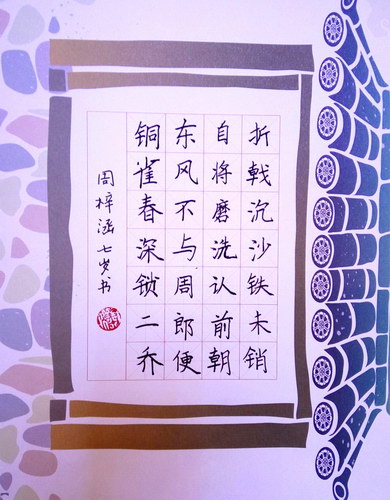 折戟沉沙铁未销
自将磨洗认前朝
东风不与周郎便
铜雀春深锁二乔
周梓涵七岁书